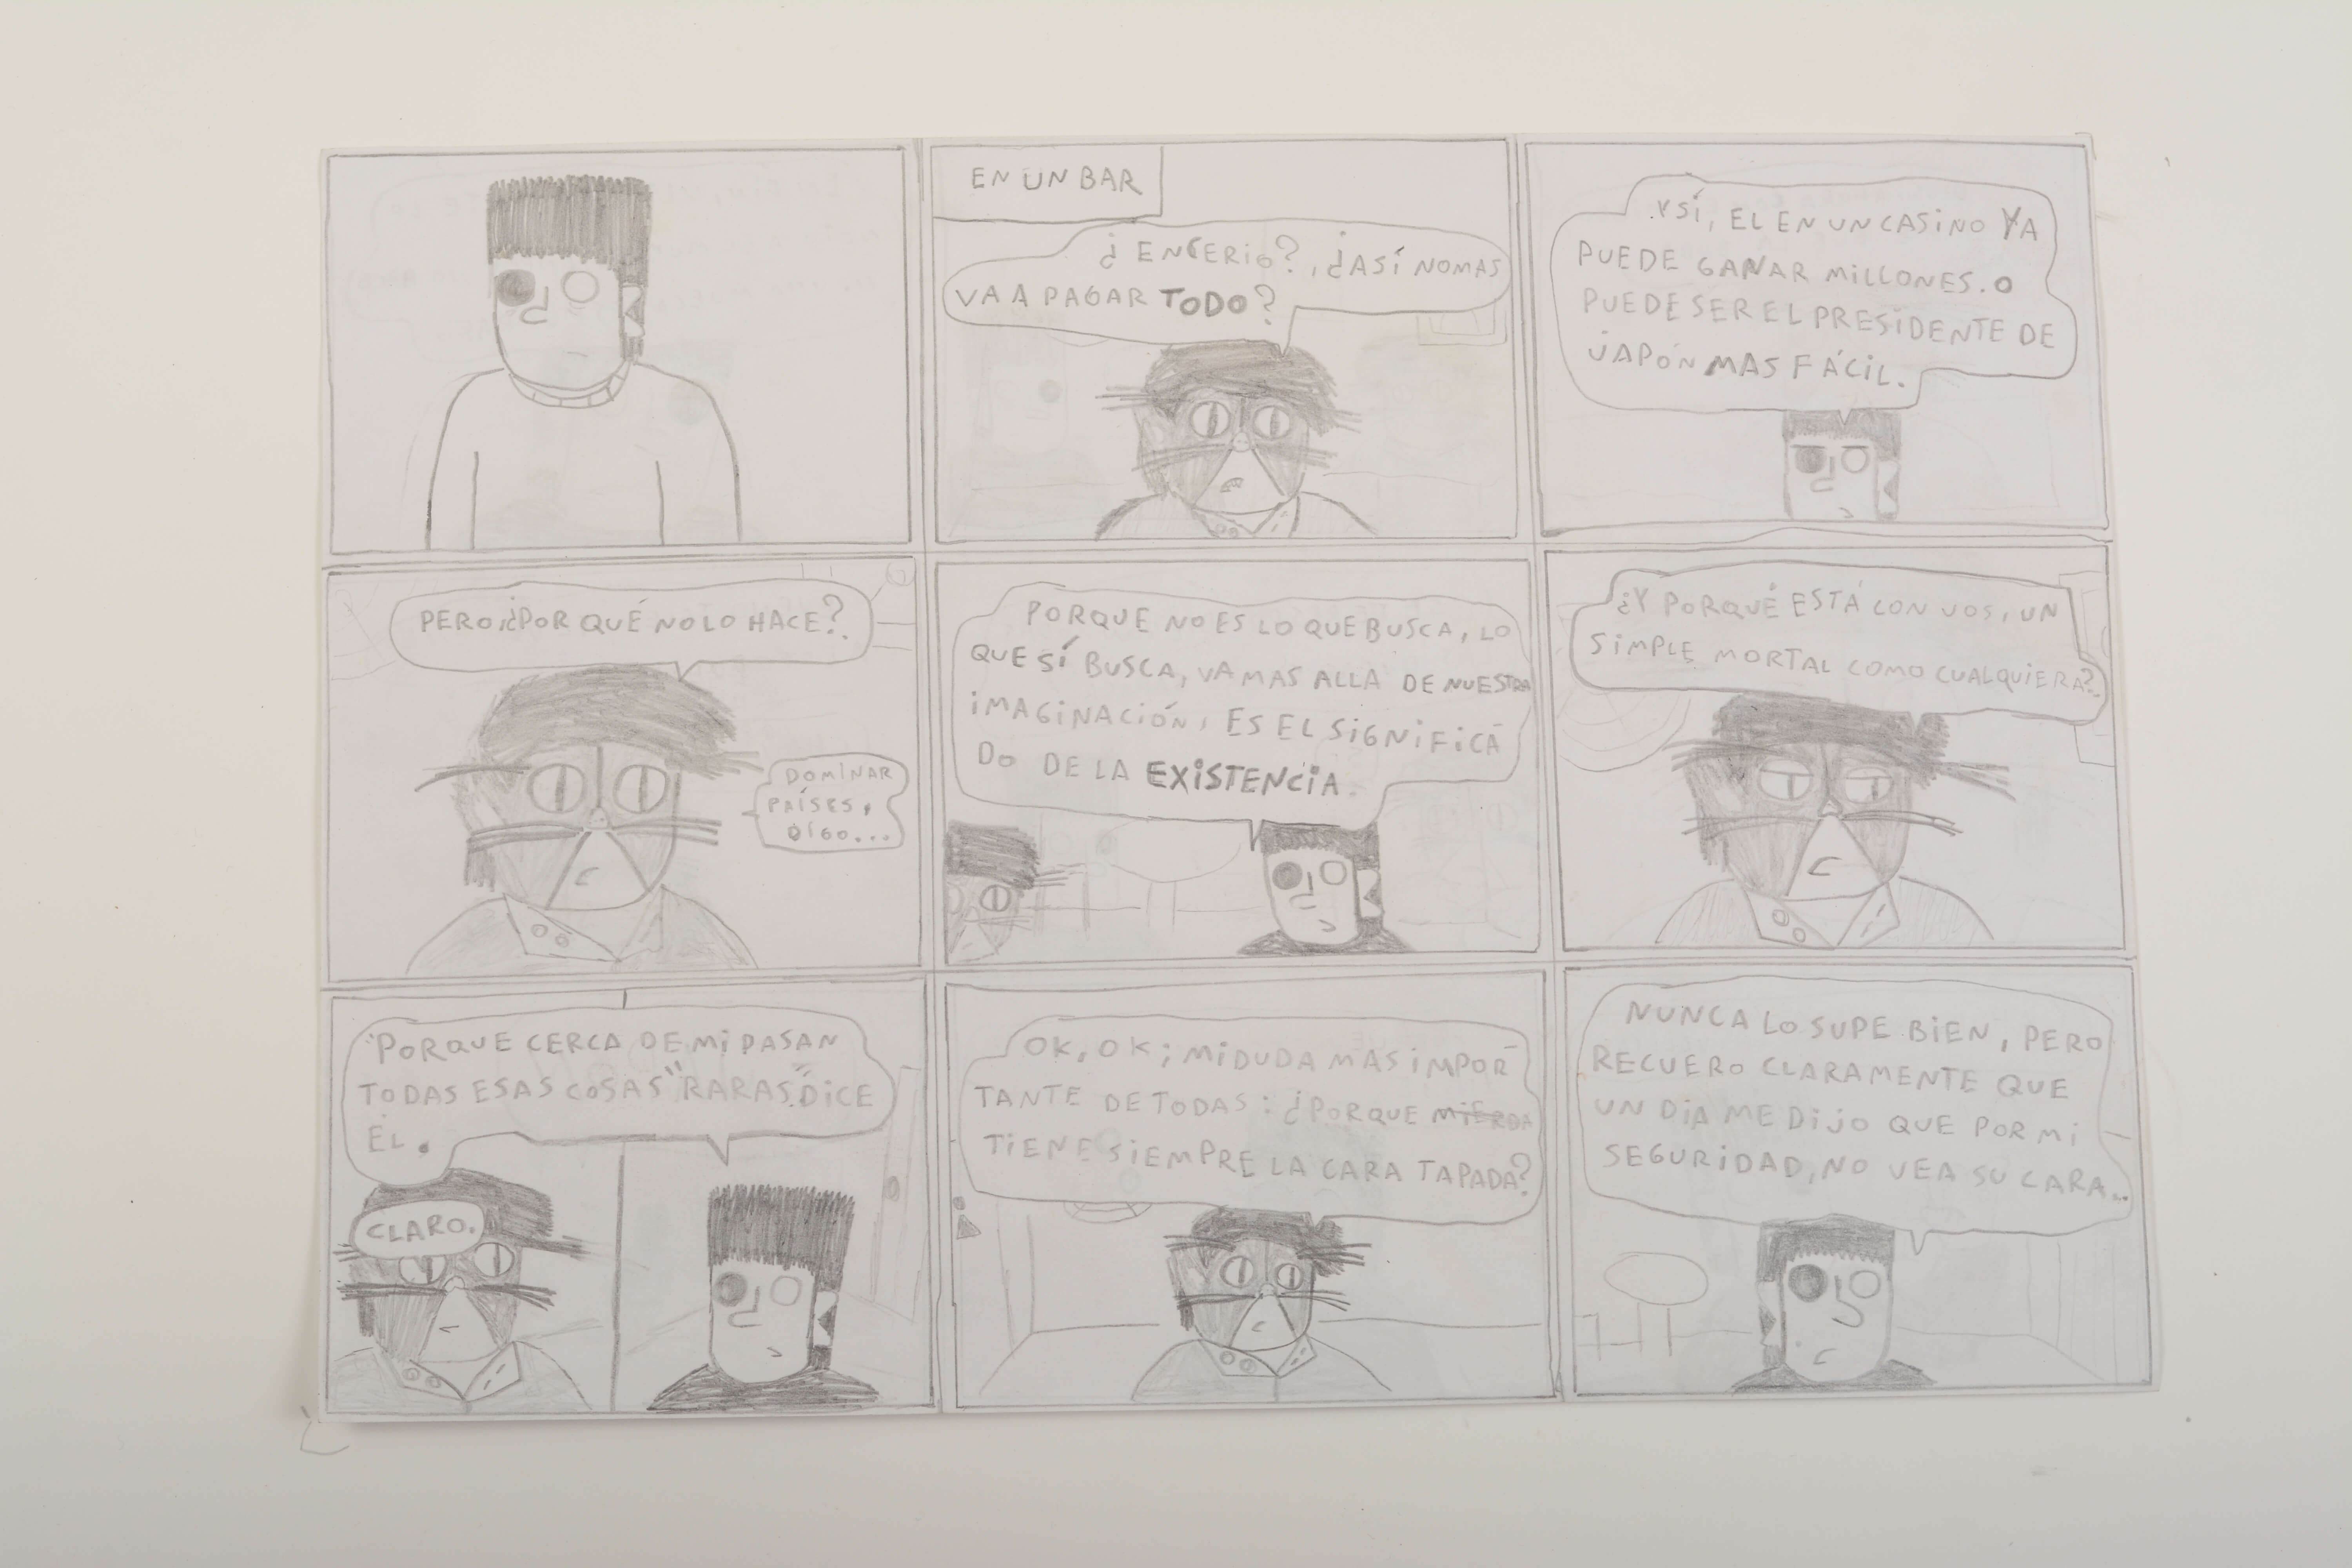 EN UN BAR
¿ENCERIO?, ¿ASÍ NOMAS
VA A PAGAR TODO?
Y SÍ, EL EN UN CASINO YA
PUEDE GANAR MILLONES. O
PUEDE SER EL PRESIDENTE DE
JAPÓN MAS FÁCIL.
PERO, ¿POR QUÉ NO LO HACE?
DOMINAR
PAÍSES,
DIGO...
PORQUE NO ES LO QUE BUSCA, LO
QUE SÍ BUSCA, VA MAS ALLA DE NUESTRA
IMAGINACIÓN, ES EL SIGNIFICA-
DO DE LA EXISTENCIA.
¿Y PORQUÉ ESTÁ CON VOS, UN
SIMPLE MORTAL COMO CUALQUIERA?
PORQUE CERCA DE MI PASAN
TODAS ESAS COSAS "RARAS" DICE
ÉL.
CLARO.
OK, OK; MI DUDA MAS IMPOR-
TANTE DE TODAS: ¿PORQUE MIERDA
TIENE SIEMPRE LA CARA TAPADA?
NUNCA LO SUPE BIEN, PERO
RECUERO CLARAMENTE QUE
UN DIA ME DIJO QUE POR MI
SEGURIDAD, NO VEA SU CARA...